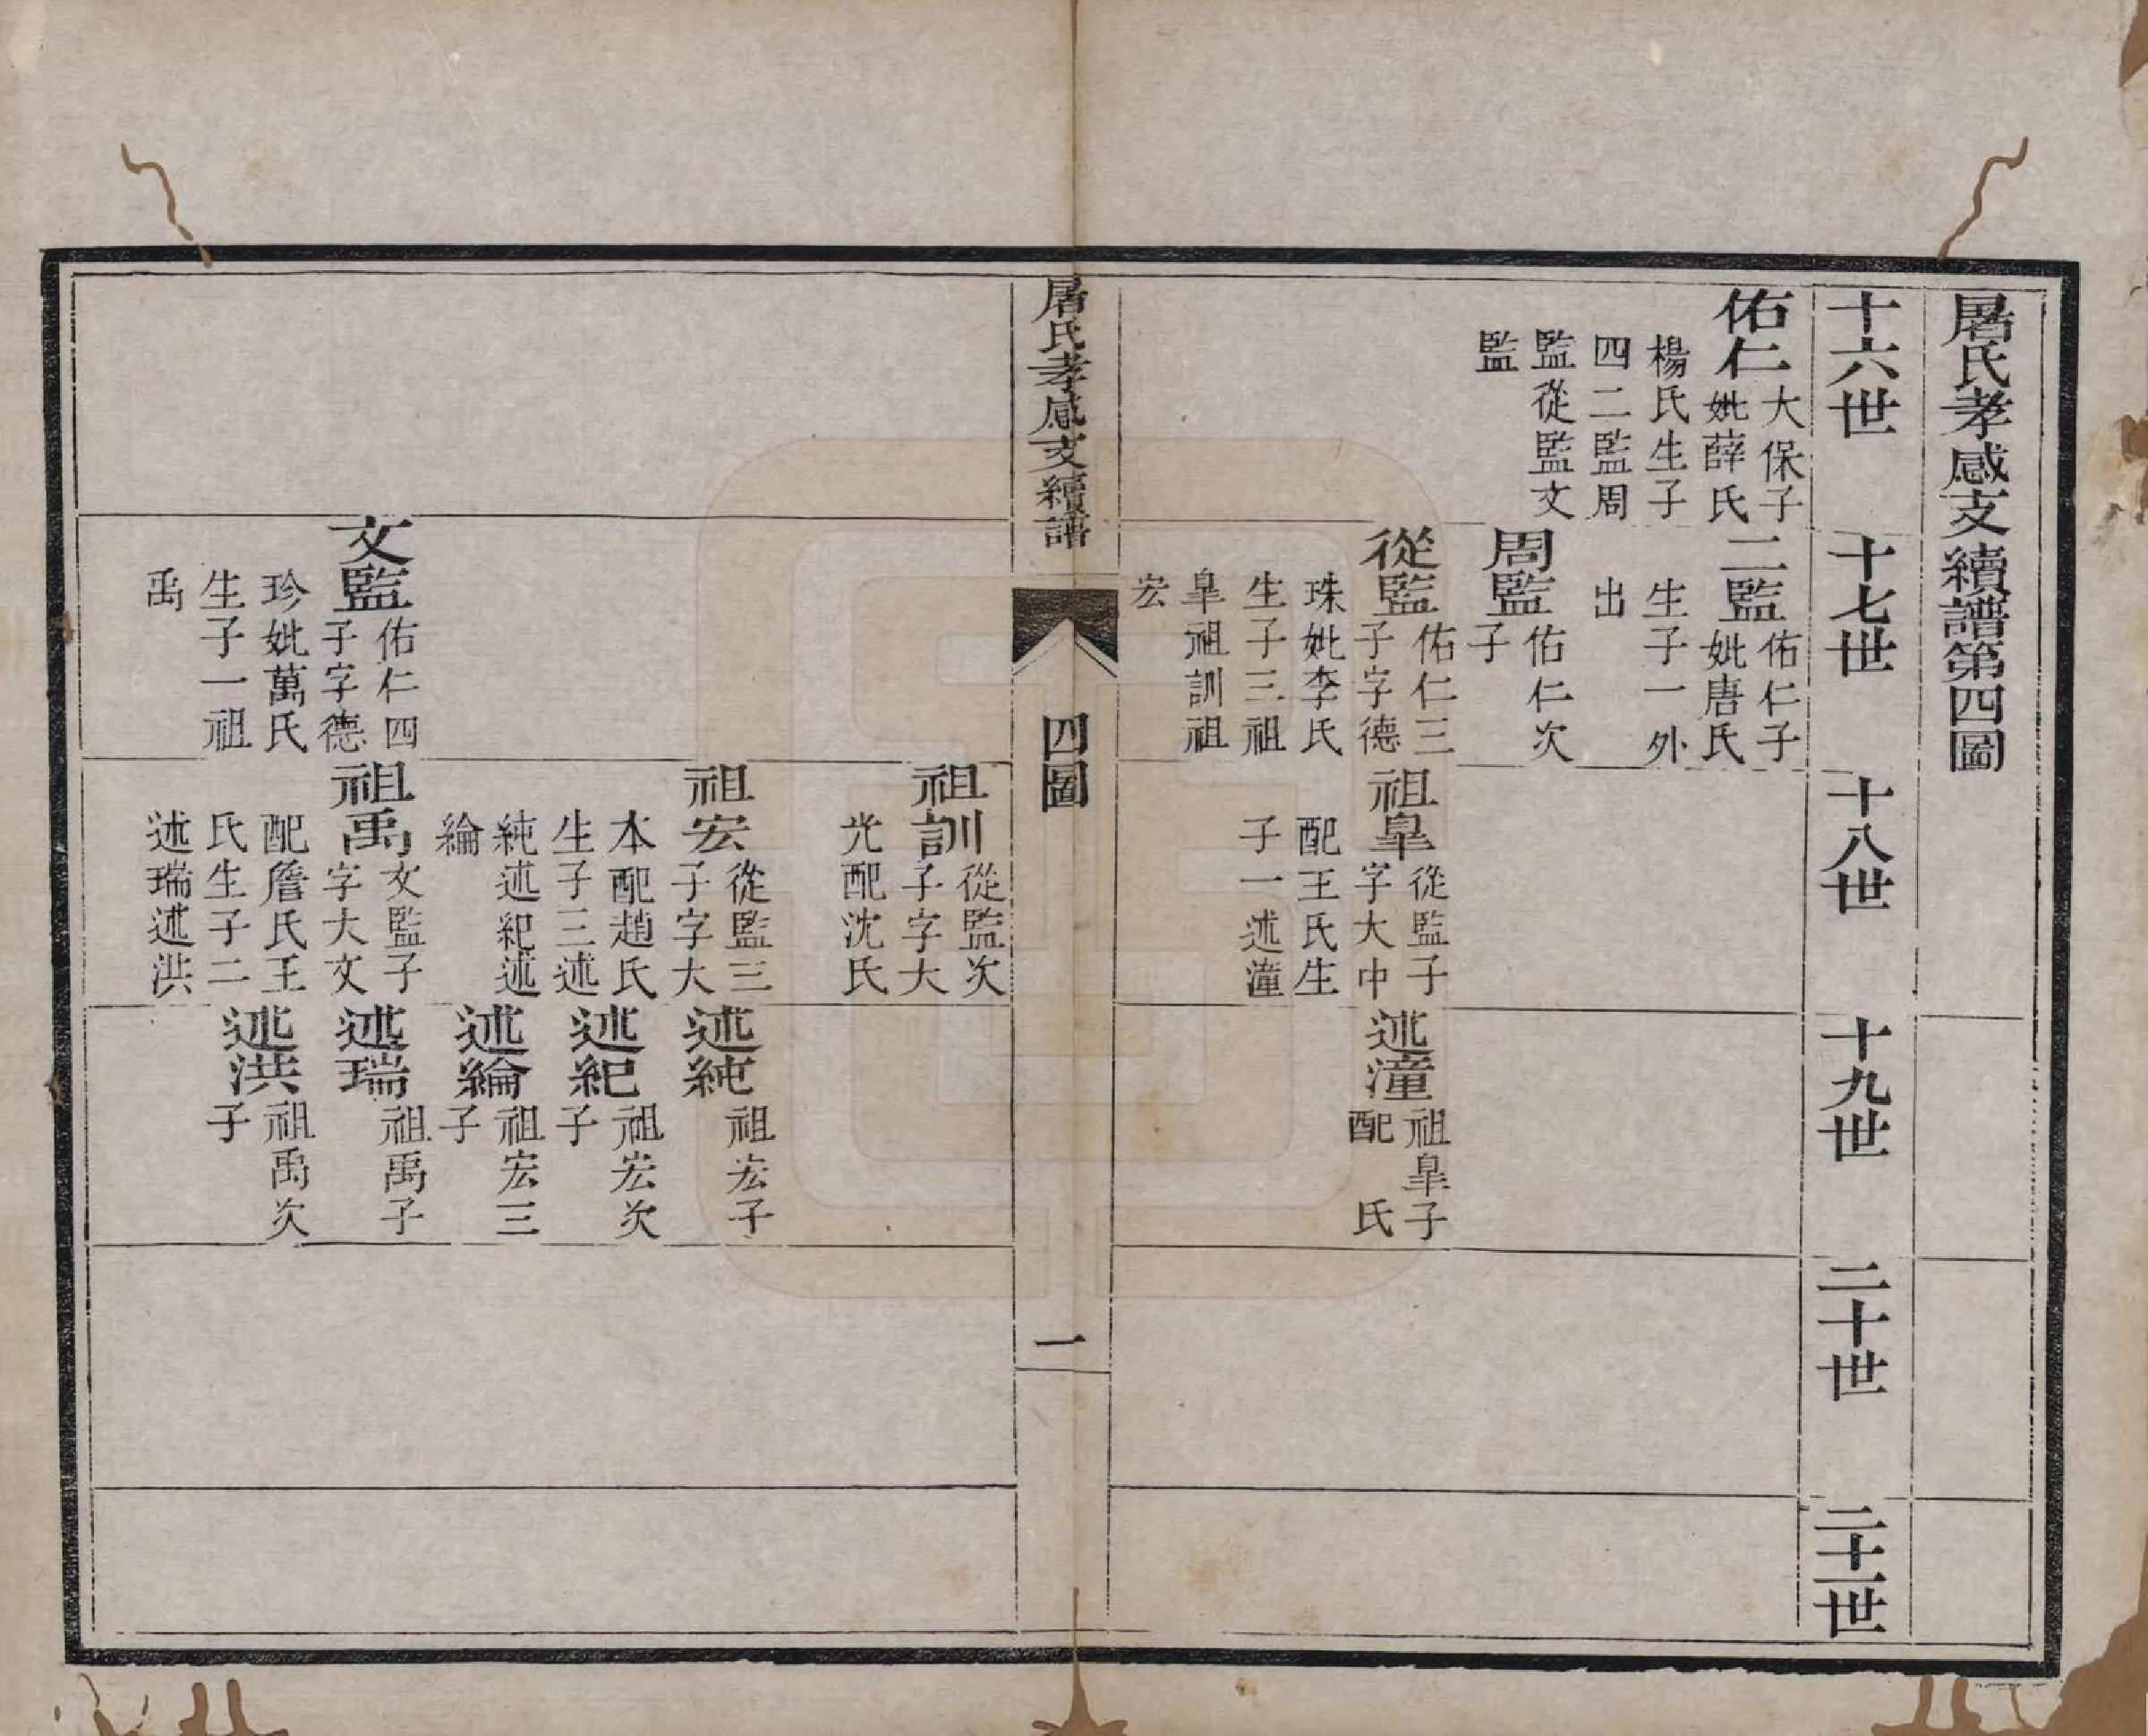 屠氏孝感支續譜第四圖
十六世
十七世
十八世
十九世
二十世
二十一世
佑仁
大保子
妣薛氏
楊氏生子
四二監周
監從監文
監
二監
佑仁子
妣唐氏
生子一外
出
周監
佑仁次
子
從監
佑仁三
子字德
珠妣李氏
生子三祖
皐祖訓祖
宏
祖皐
從監子
字大中
配王氏生
子一述潼
述潼
祖皐子
配　氏
屠氏孝感支續譜
四圖
一
祖訓
從監次
子字大
光配沈氏
祖宏
從監三
子字大
本配趙氏
生子三述
純述紀述
綸
述純
祖宏子
述紀
祖宏次
子
述綸
祖宏三
子
文監
佑仁四
子字德
珍妣萬氏
生子一祖
禹
祖禹
文監子
字大文
配詹氏王
氏生子二
述瑞述洪
述瑞
祖禹子
述洪
祖禹次
子